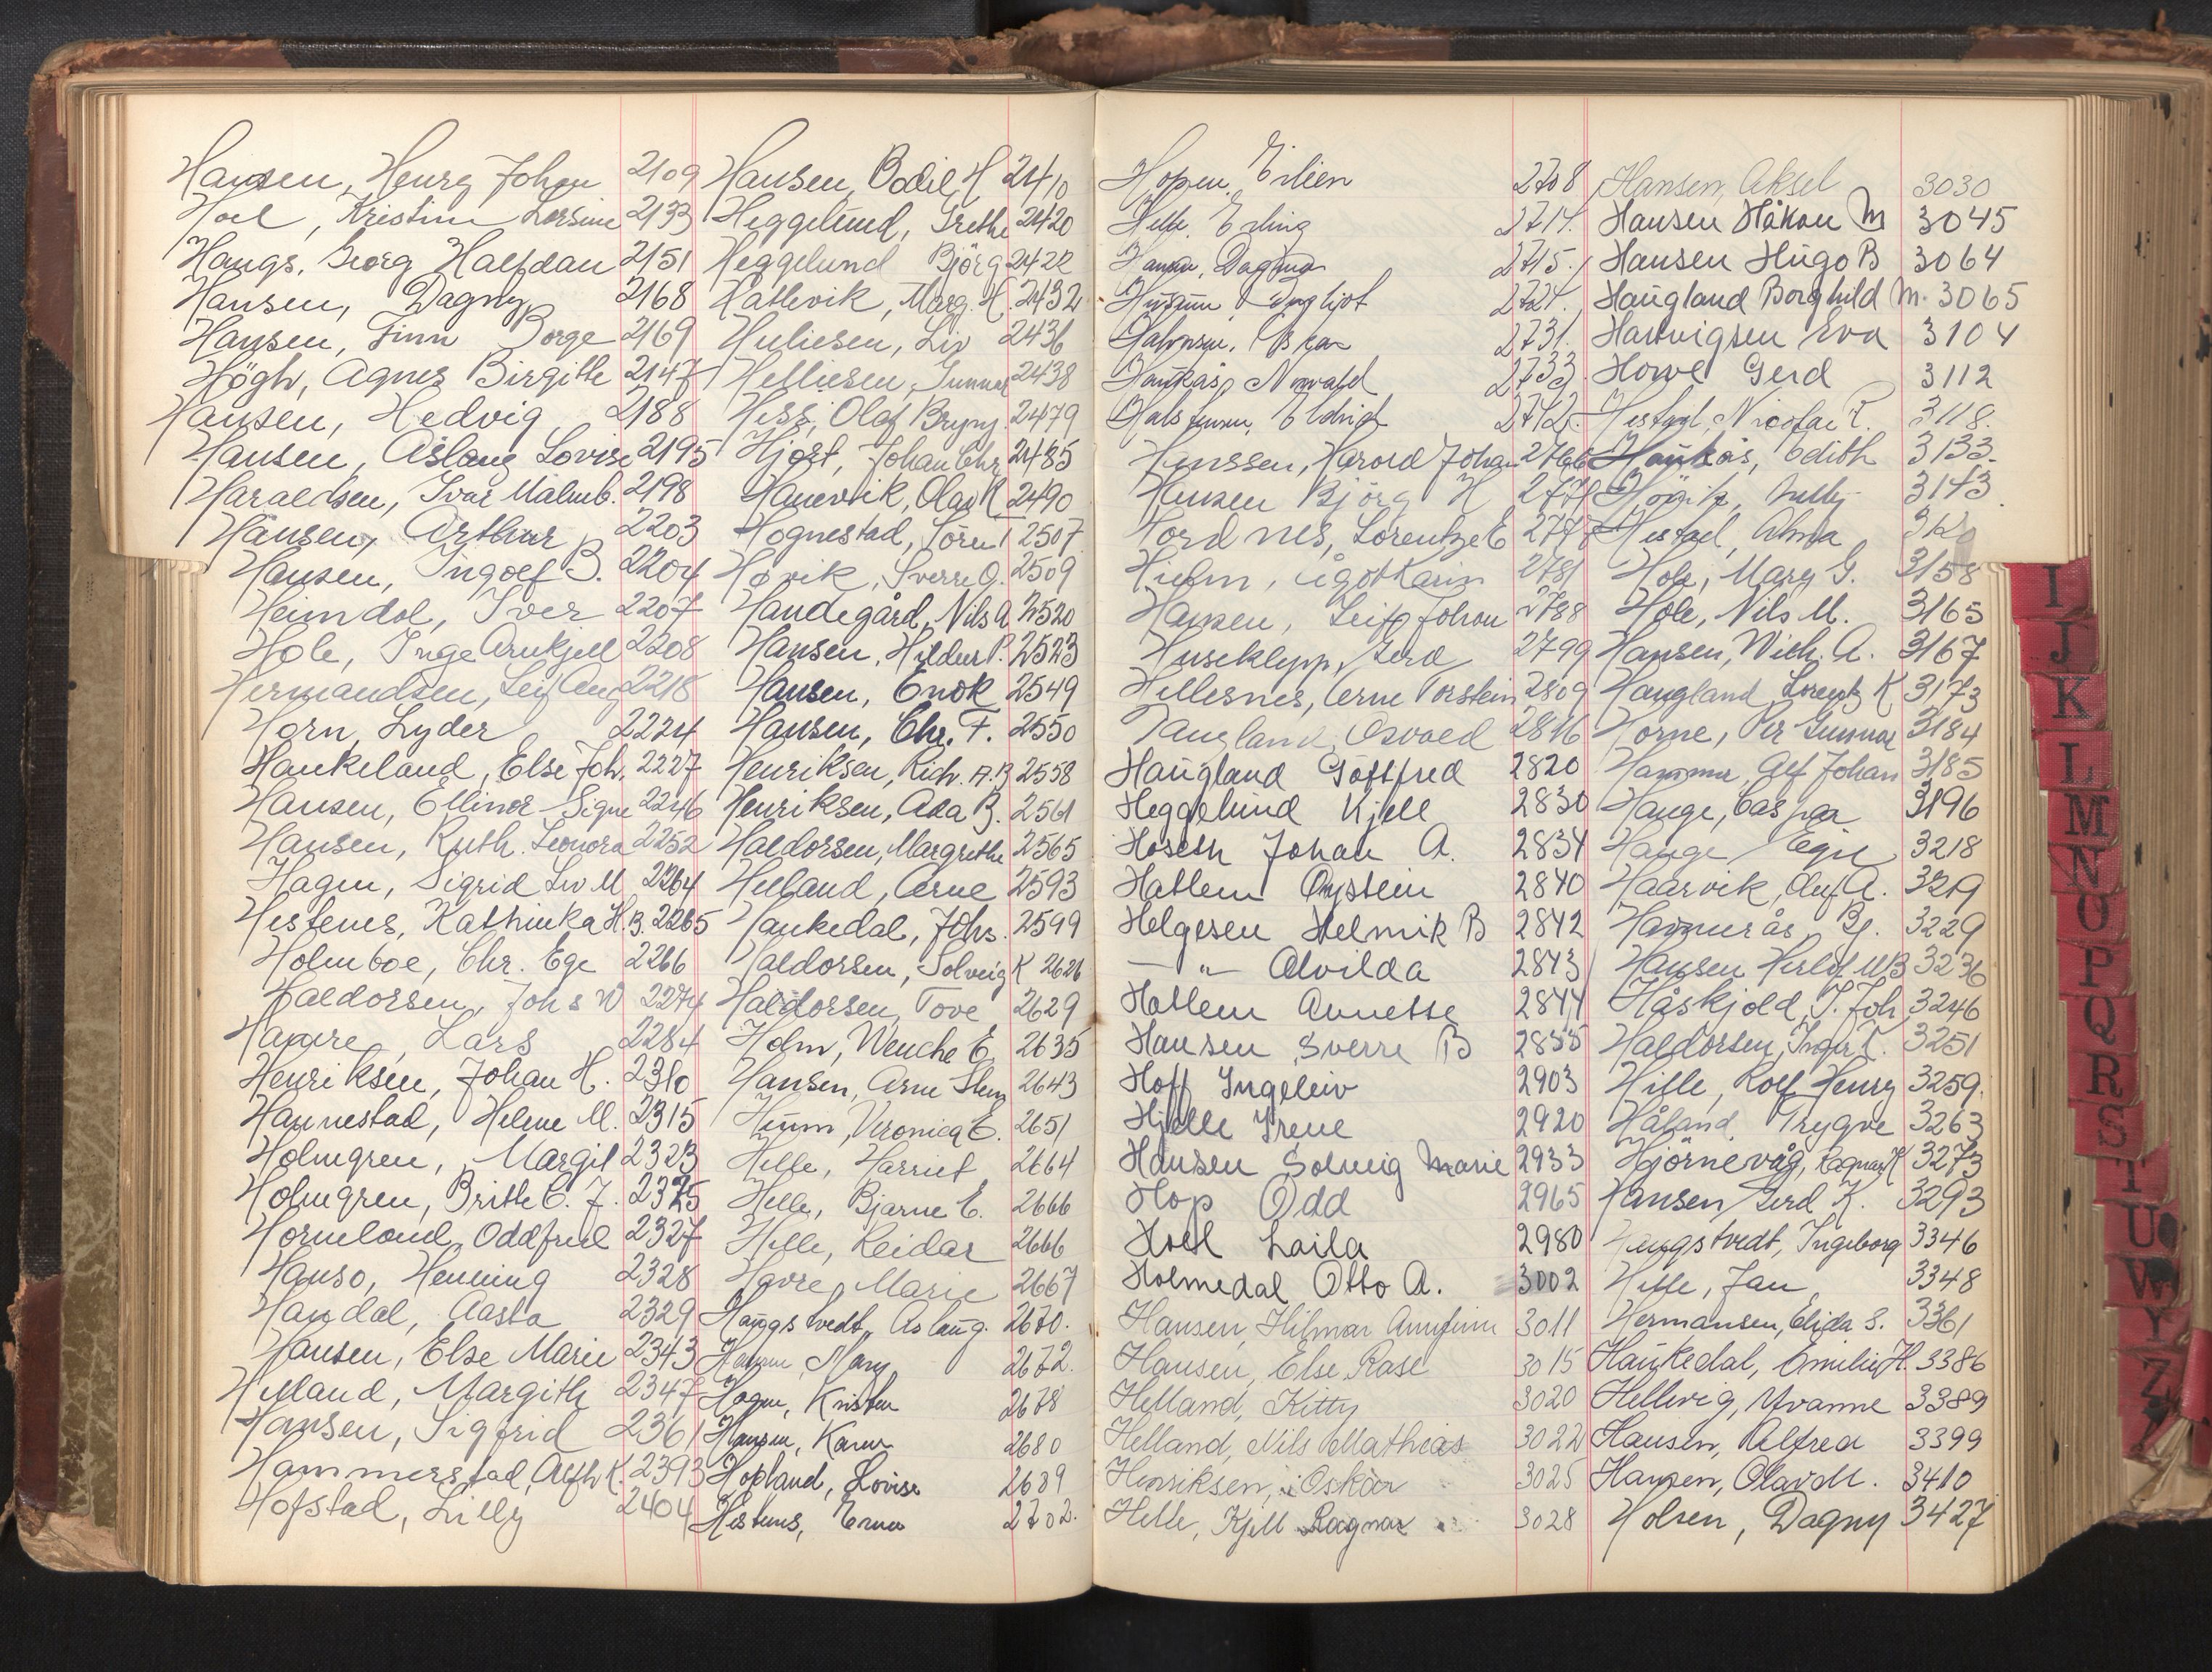 Hansen, Henry Johan 2109
Hoel, Kristine Lorsine 2133
Haugs, Georg Halfdan 2151
Hansen, Dagny 2168
Hansen, Finn Borge 2169
Högh, Agnes Birgitte 2147
Hansen, Hedvig 2188
Hansen, Åslaug Lovise 2195
Haraldsen, Ivar Malmb. 2198
Hansen, Arthur 2203
Hansen, Ingolf B. 2204
Heimdal, Iver 2207
Hole, Inge Arnkjell 2208
Hermandsen, Leif Aug 2218
Horn, Lyder 2224
Haukeland, Else Joh. 2227
Hansen, Ellinor Signe 2246
Hansen, Ruth Leonora 2252
Hagen, Sigrid Liv M 2264
Hestenes, Kathinka H.B. 2265
Holmboe, Chr. Ege 2266
Haldorsen, Johs W 2274
Hamre, Lars 2284
Henriksen, Johan H. 2310
Hannestad, Helene M. 2315
Holmgren, Margit 2323
Holmgren, Brith E. J. 2325
Horneland, Oddfred 2327
Hauso, Henning 2328
Haudal, Aasta 2329
Hansen, Else Marie 2343
Helland, Margith 2347
Hansen, Sigfrid 2361
Hammerstad, Alfh K. 2393
Hofstad, Lilly 2404
Hansen, Bodil H 2410
Heggelund, Grethe 2420
Heggelund Björg 2422
Hatlevik, Marg. H. 2432
Heliesen, Liv 2436
Helliesen, Gunnar 2438
Hess, Olaf Brynj. 2479
Hjort, Johan Chr. 2485
Hanevik, Olav K. 2490
Hognestad, Sören T 2507
Høvik, Sverre O. 2509
Handegård, Nils A 2520
Hansen, Hildur P. 2523
Hansen, Enok 2549
Hansen, Chr. F. 2550
Henriksen, Rich. A.B 2558
Henriksen, Asa B. 2561
Haldorsen, Margrethe 2565
Helland, Arne 2593
Haukedal, Johs. 2599
Haldorsen, Solveig K 2626
Haldorsen, Tove 2629
Holm, Wenche E. 2635
Hansen, Arne Sten 2643
Hum, Veronica E. 2651
Hille, Harriet 2664
Helle, Bjarne E. 2666
Hille, Reidar 2666
Havre, Marie 2667
Haugstvedt, Aslaug. 2670.
Mary 2672.
Hagen, Kristen 2678
Hansen, Karen 2680
Hopland, Lovise 2689
Hestenes, Erna 2702.
Hopen, Eilien 2708
Helle, Erling 2714.
Hansen, Dagmar 2715.
Ingljot 2721.
Halvorsen, Oskar 2731.
Haukås, Norvald 2733.
Halstensen, Eldrid 2742.
Hanssen, Harold Johan 2766
Hansen Björg H
Hordnes, Lorentze E 2777
Hielm, Ågot Karin 2781
Hansen, Leif Johan 2788
Huseklepp, Gerd 2799
Hillesnes, Arne Torstein 2809
Haugland, Osvald 2816
Haugland Gottfred 2820
Heggelund Kjell 2830
Hoseth Johan A. 2834
Hatlem Øystein 2840
Helgesen Helmik B 2842
— " — Alvilda 2843
Hatlem Annette 2844
Hansen Sverre B 2855
Hoff Ingeleiv 2903
Hjelle Irene 2920
Hansen Solveig Marie 2933
Hop Odd 2965
Hoel Laila 2980
Holmedal Otto A. 3002
Hansen, Hilmar Annfinn 3011
Hansen, Else Rase 3015
Helland, Kitty 3020
Helland, Nils Mathias 3022
Henriksen, Oskar 3025
Helle, Kjell Ragnar 3028
Hansen, Aksel 3030
Hansen Håkon M 3045
Hansen Hugo B 3064
Haugland Borghild M. 3065
Hartvigsen Eva 3104
Howe Gerd 3112
Hestad, Nicolai T. 3118.
Haukås, Edith 3133.
3143.
Hestad, Alma
Hole, Marg G. 3158
Hole, Nils M. 3165
Hansen, Wich. A. 3167
Haugland Lorentz K 3173
Horne, Per Gunnar 3184
Hammer, Alf Johan 3185
Hauge, Caspar 3196
Hauge Egil 3218
Haarvik, Oluf A. 3219
Hammerås, Bj. 3229
Hansen Herlof MB 3236
Håskjold, T. Joh 3246
Haldorsen, Inger T. 3251
Hille, Rolf Henry 3259.
Håland, Trygve 3263
Hjörnevåg, Ragnar K 3273
Hansen Gerd K. 3293
Haugstvedt, Ingeborg 3346
Hille, Jan 3348
Hermansen, Elida S. 3361
Haukedal, Emilie H. 3386
Hellevig, Yvanne 3389
Hansen, Alfred 3399
Hansen, Olav M. 3410
Holsen, Dagny 3427
I
J
K
L
M
N
O
P
Q
R
S
T
U
W
Y
Z